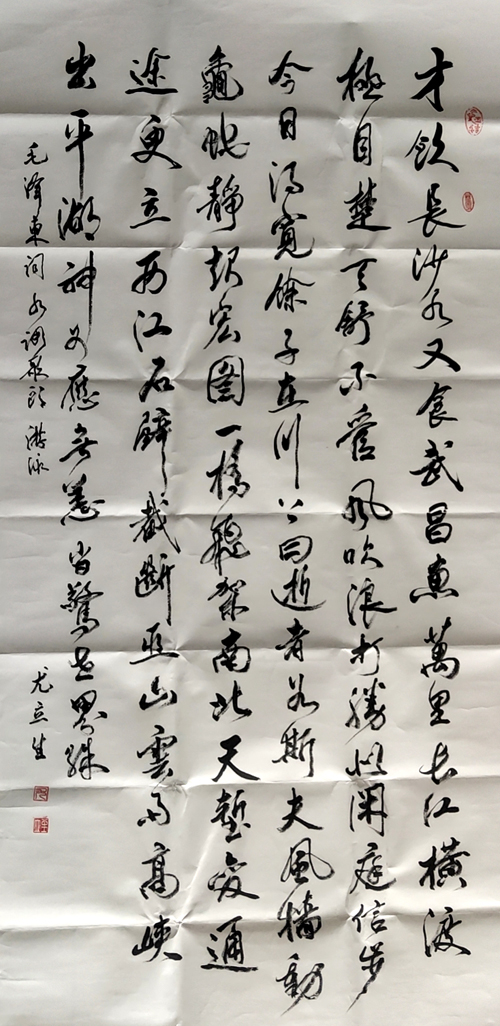 才飲長沙水又食武昌魚萬里長江橫渡
極目楚天舒不管風吹浪打勝似閑庭信步
今日得寬餘子在川上曰逝者如斯夫風檣動
龜蛇靜起宏圖一橋飛架南北天塹變通
途更立西江石壁截斷巫山雲雨高峽
出平湖神女應無恙當驚世界殊
毛澤東詞水調歌頭游泳 尤立生